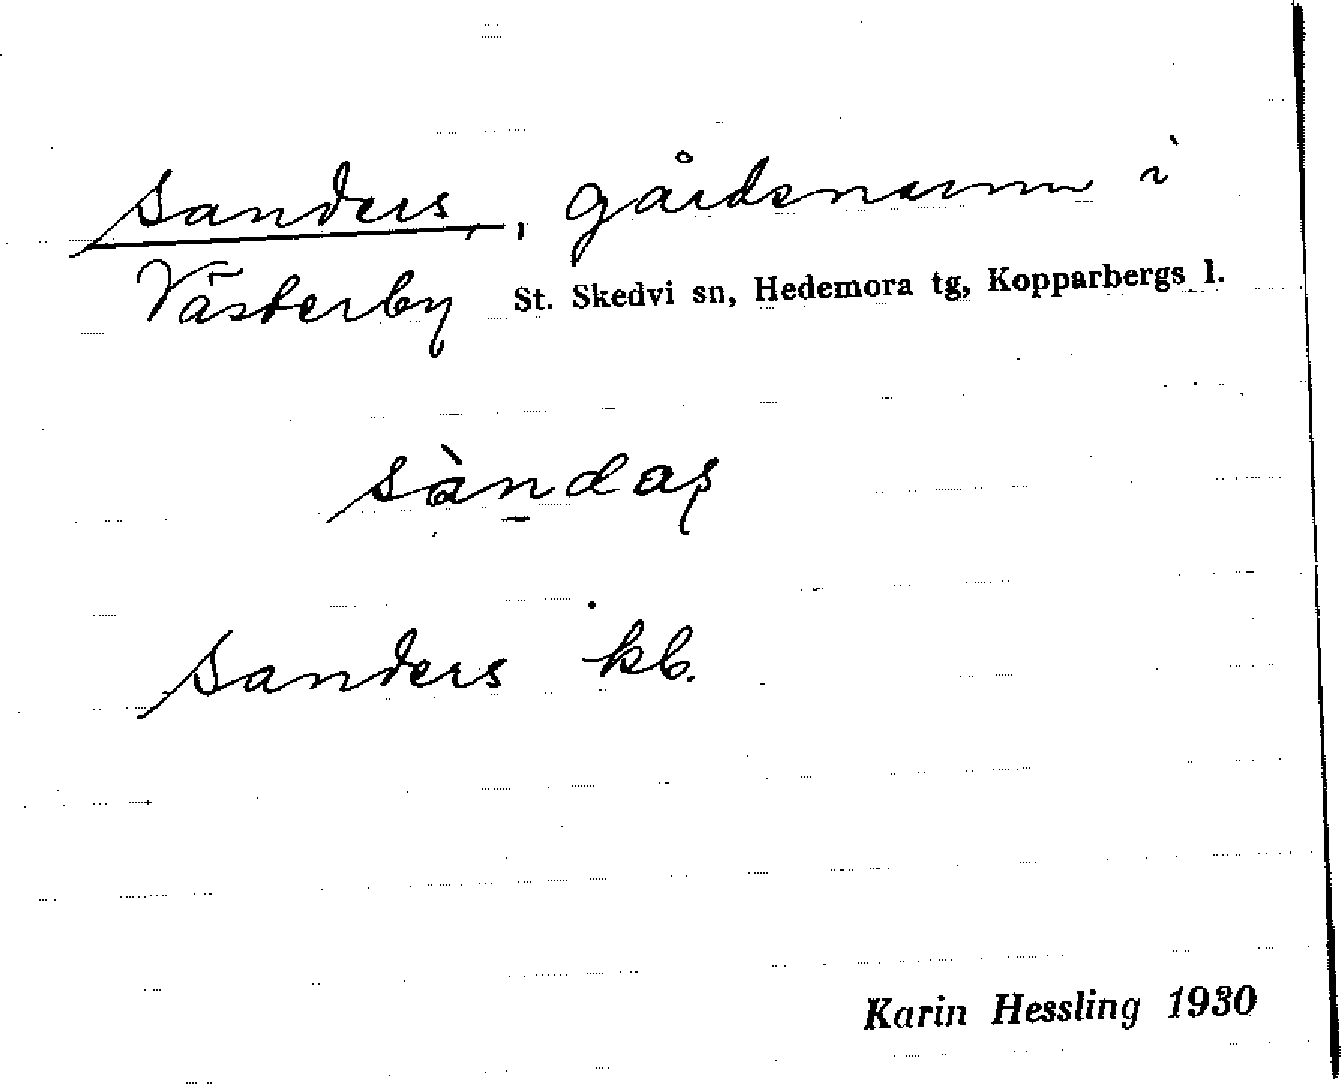 Sanders, gårdsnamn i
Västerby St. Skedvi sn, Hedemora tg, Kopparbergs l.
sàndaʂ
Sanders kb.
Karin Hessling 1930